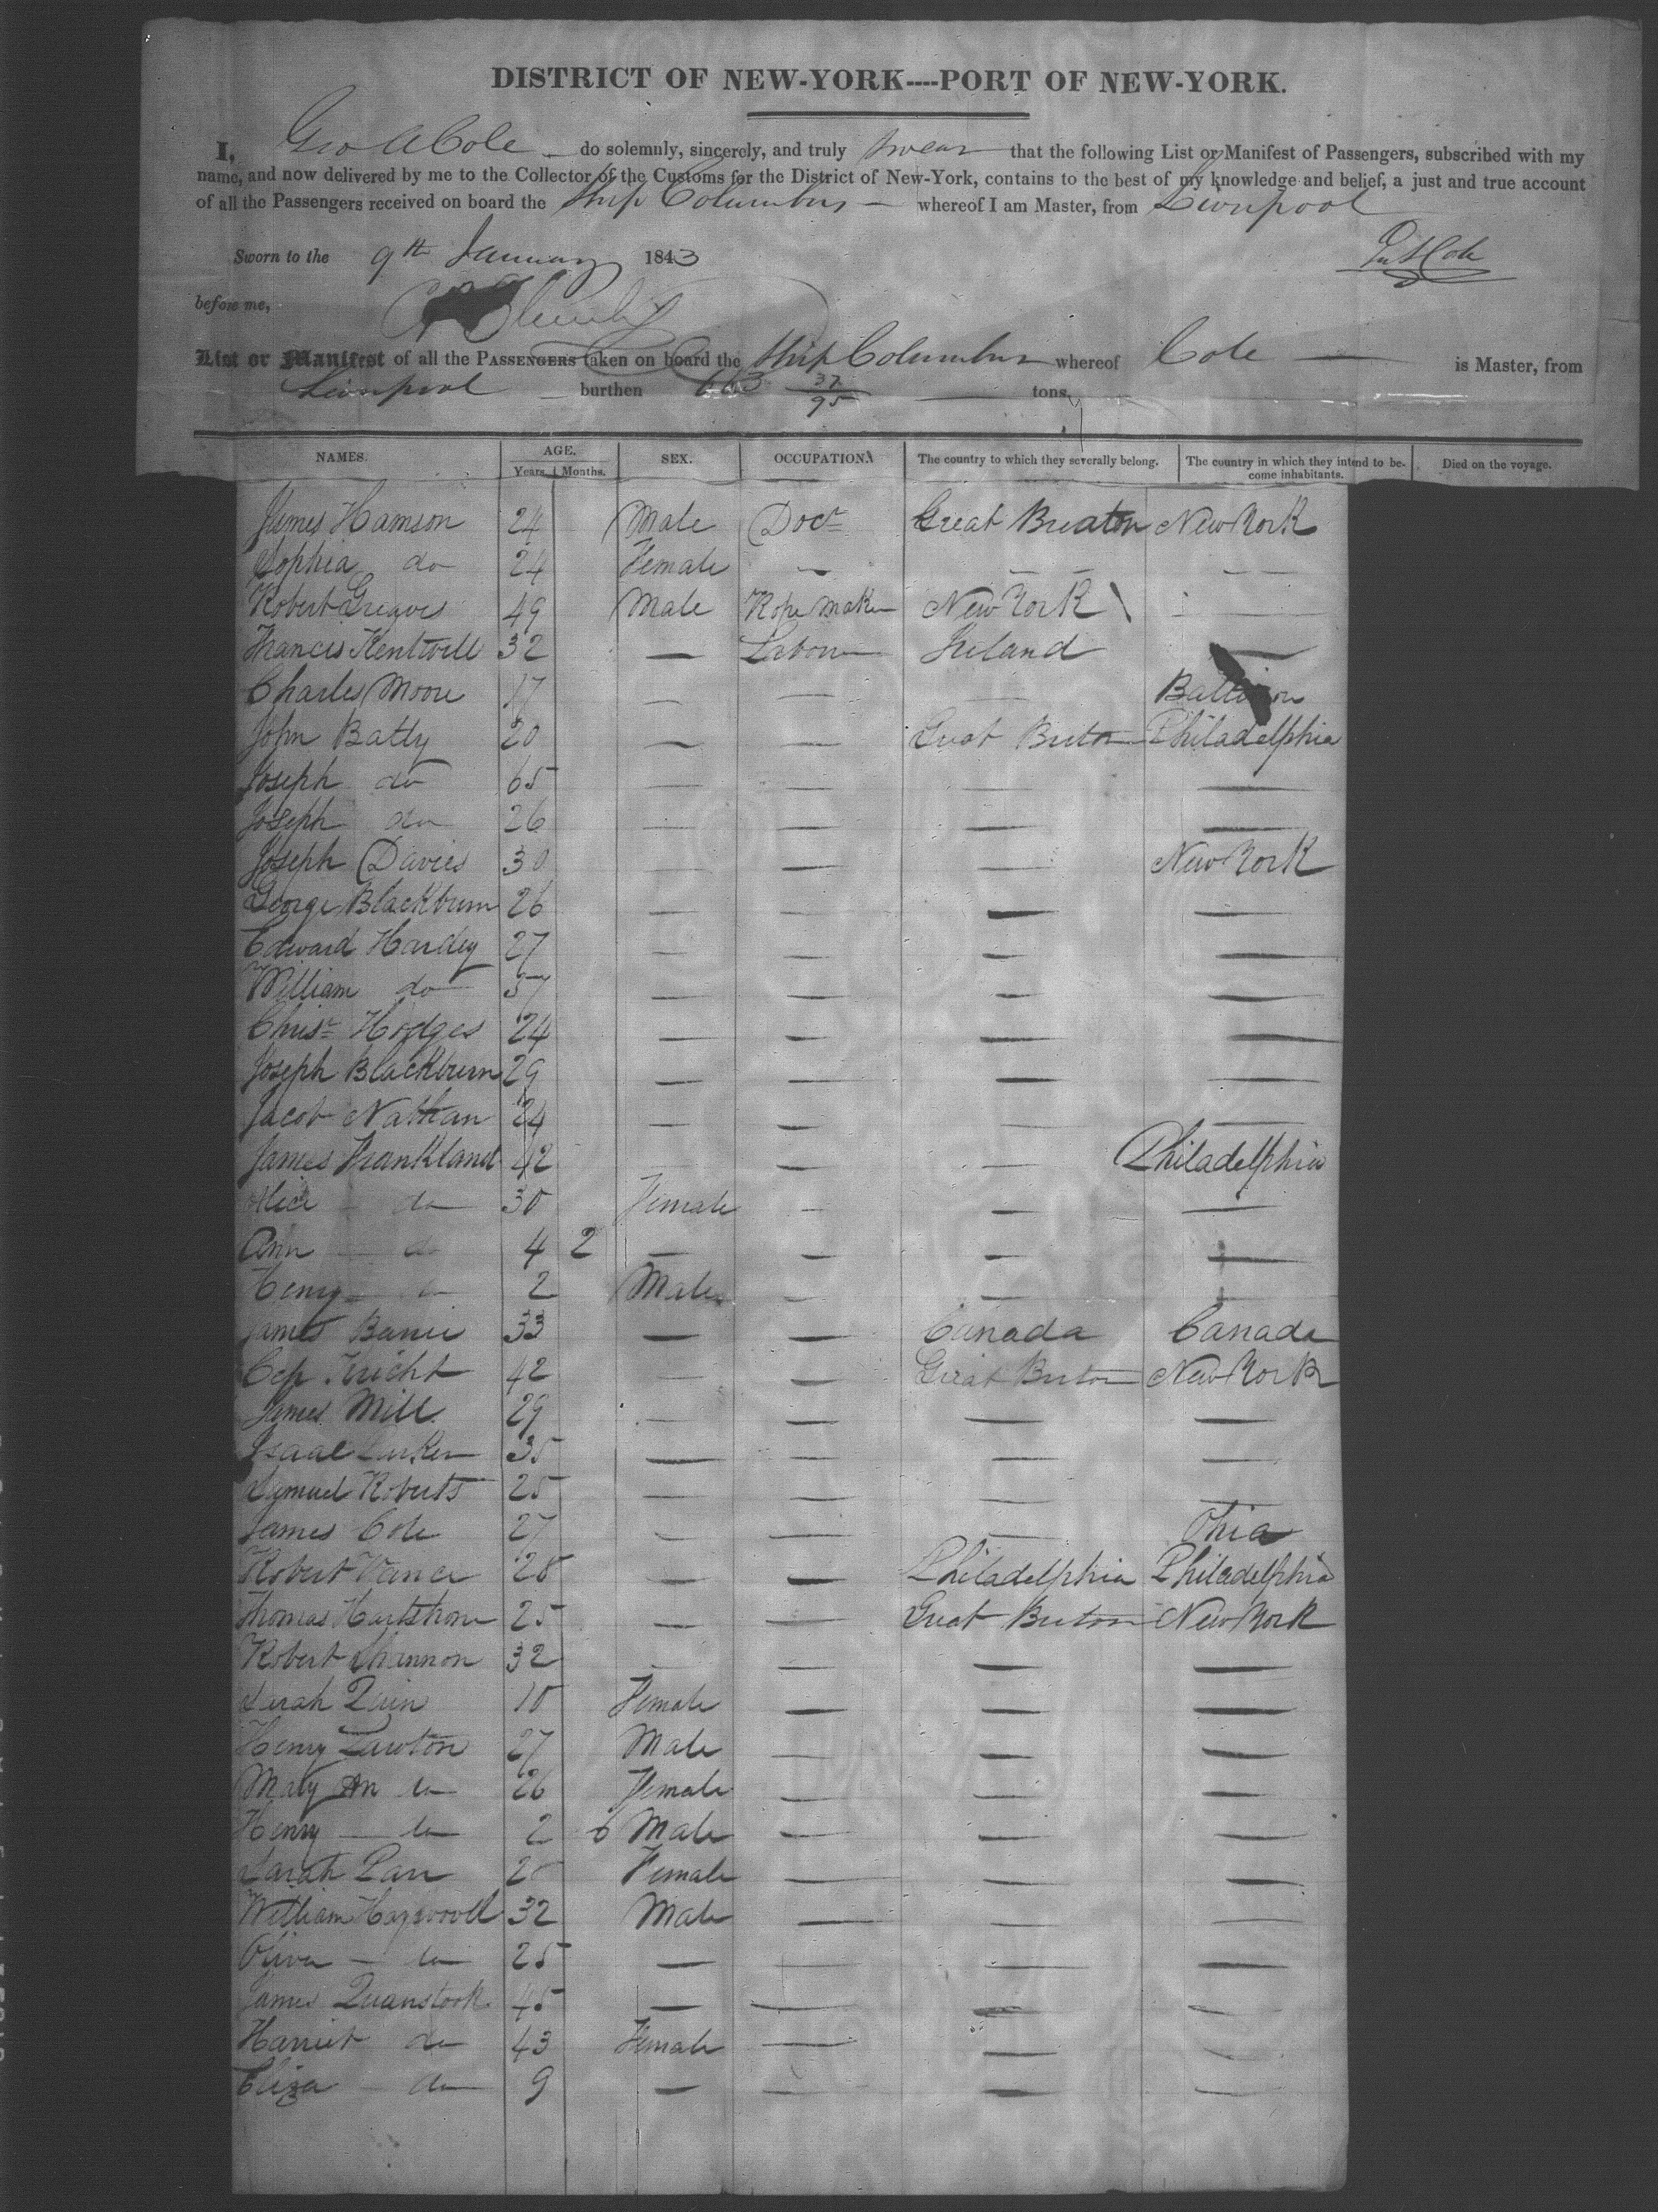 DISTRICT OF NEW-YORK----PORT OF NEW-YORK.
I, Geo A Cole do solemnly, sincerely, and truly swear that the following List or Manifest of Passengers, subscribed with my
name, and now delivered by me to the Collector of the Customs for the District of New-York, contains to the best of my knowledge and belief, a just and true account
of all the Passengers received on board the Ship Columbus whereof I am Master, from Liverpool
Sworn to the 9th January 1843
Geo A Cole
before me,
List or Manifest of all the PASSENGERS taken on board the Ship Columbus whereof Cole is Master, from
Liverpool burthen 663 37/95 tons.
NAMES. AGE. Years. Months. SEX. OCCUPATION. The country to which they severally belong. The country in which they intend to become inhabitants. Died on the voyage.
James Hamson 24 Male Docr Great Breaton New York
Sophia do 24 Female — — —
Robert Greaves 49 Male Rope Maker New York —
Francis Kentwell 32 — Labour Ireland —
Charles Moore 17 — — — Baltimore
John Batty 20 — — Great Briton Philadelphia
Joseph do 65 — — — —
Joseph do 26 — — — —
Joseph Davies 30 — — — New York
George Blackburn 26 — — — —
Edward Hardey 27 — — — —
William do 37 — — — —
Chrisr Hodges 24 — — — —
Joseph Blackburn 29 — — — —
Jacob Nathan 24 — — — —
James Frankland 42 — — — Philadelphia
Alice do 30 Female — — —
Ann do 4 2 — — — —
Henry do 2 Male — — —
James 33 — — Canada Canada
42 — — Great Briton New York
James Mill 29 — — — —
Isaac 35 — — — —
Samuel Roberts 25 — — — —
James Cole 27 — — — Ohio
Robert Vance 28 — — Philadelphia Philadelphia
Thomas 25 — — Great Briton New York
Robert Shannon 32 — — — —
Sarah Quin 18 Female — — —
Henry Lawton 27 Male — — —
Mary An do 26 Female — — —
Henry do 2 6 Male — — —
Sarah 20 Female — — —
William 32 Male — — —
do 25 — — — —
James 45 — — — —
Harriet do 43 Female — — —
Eliza do 9 — — — —